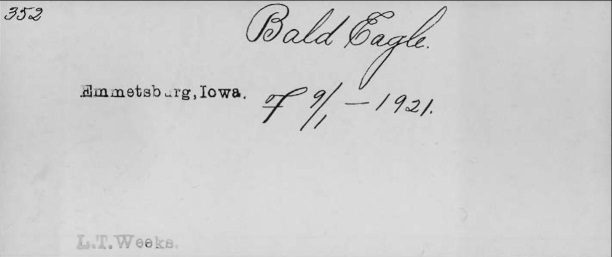 352
Bald Eagle.
Emmetsburg, Iowa. of 9/1 — 1921.
L.T. Weeks.